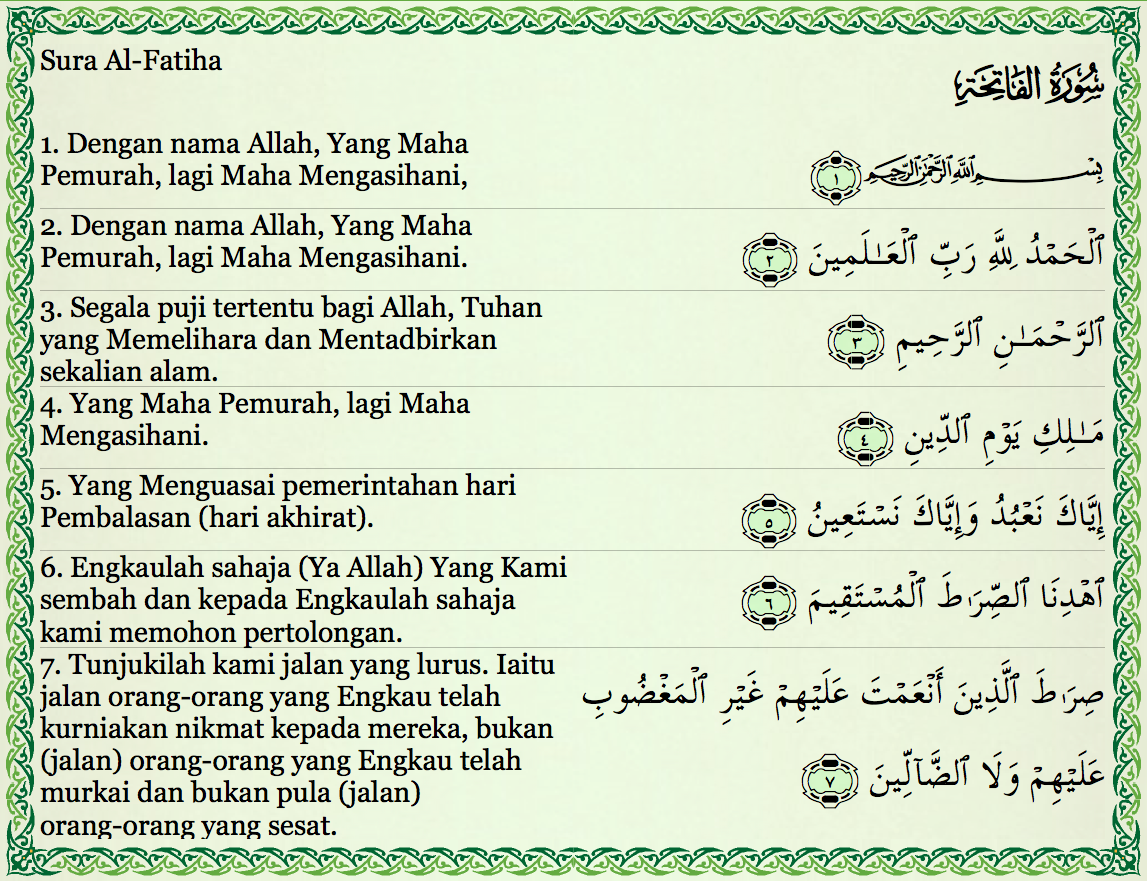 Sura Al-Fatiha
سُورَةُ الفَاتِحَةِ
1. Dengan nama Allah, Yang Maha
Pemurah, lagi Maha Mengasihani,
بِسْمِ ٱللَّهِ ٱلرَّحْمَـٰنِ ٱلرَّحِيمِ ١
2. Dengan nama Allah, Yang Maha
Pemurah, lagi Maha Mengasihani.
ٱلْحَمْدُ لِلَّهِ رَبِّ ٱلْعَـٰلَمِينَ ٢
3. Segala puji tertentu bagi Allah, Tuhan
yang Memelihara dan Mentadbirkan
sekalian alam.
ٱلرَّحْمَـٰنِ ٱلرَّحِيمِ ٣
4. Yang Maha Pemurah, lagi Maha
Mengasihani.
مَـٰلِكِ يَوْمِ ٱلدِّينِ ٤
5. Yang Menguasai pemerintahan hari
Pembalasan (hari akhirat).
إِيَّاكَ نَعْبُدُ وَإِيَّاكَ نَسْتَعِينُ ٥
6. Engkaulah sahaja (Ya Allah) Yang Kami
sembah dan kepada Engkaulah sahaja
kami memohon pertolongan.
ٱهْدِنَا ٱلصِّرَٰطَ ٱلْمُسْتَقِيمَ ٦
7. Tunjukilah kami jalan yang lurus. Iaitu
jalan orang-orang yang Engkau telah
kurniakan nikmat kepada mereka, bukan
(jalan) orang-orang yang Engkau telah
murkai dan bukan pula (jalan)
orang-orang yang sesat.
صِرَٰطَ ٱلَّذِينَ أَنْعَمْتَ عَلَيْهِمْ غَيْرِ ٱلْمَغْضُوبِ
عَلَيْهِمْ وَلَا ٱلضَّآلِّينَ ٧